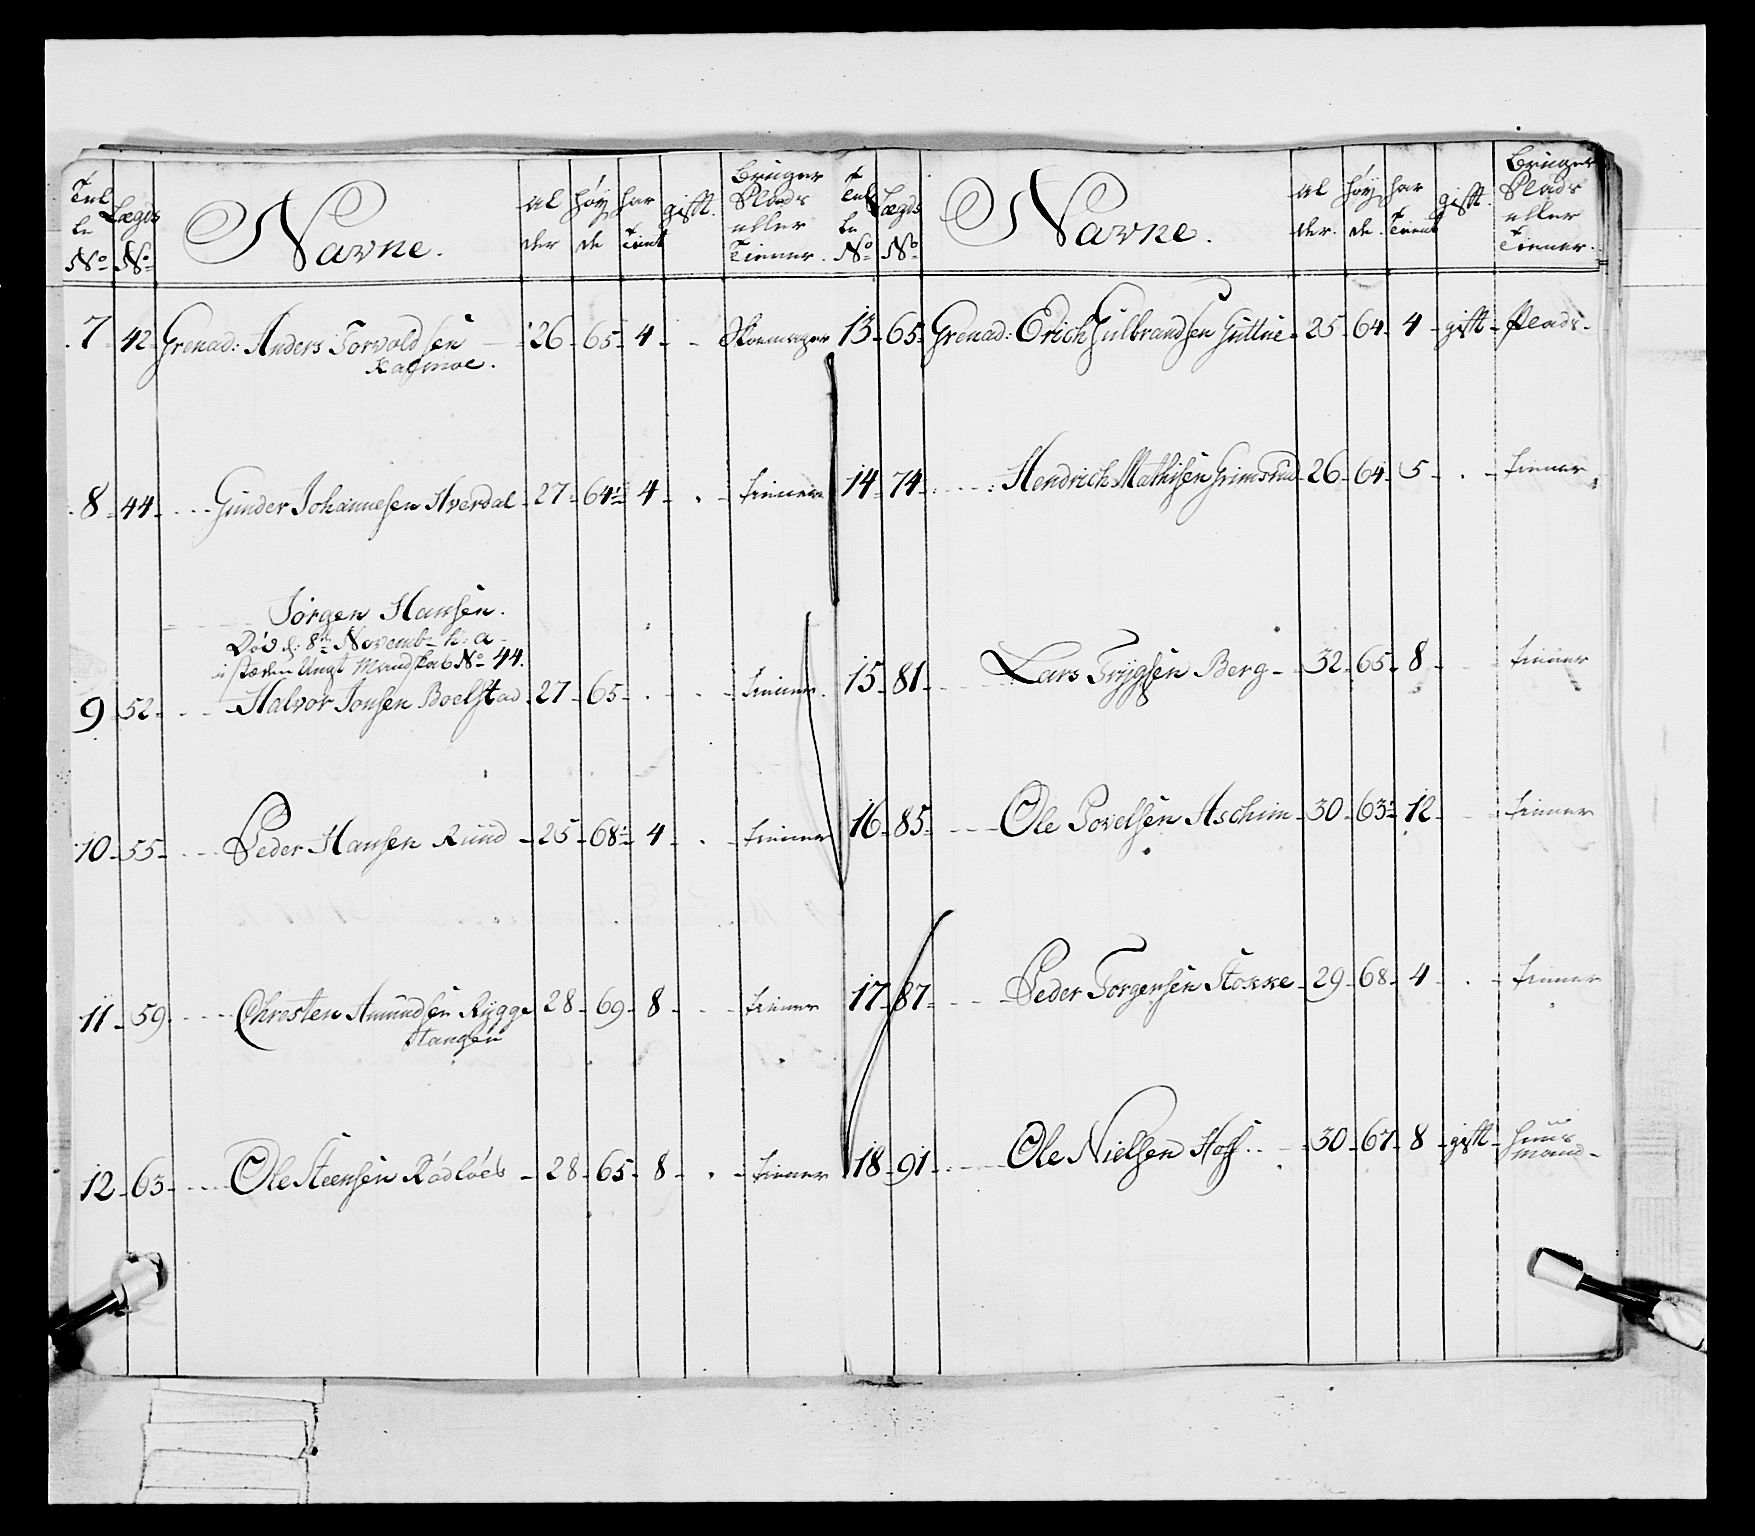 Tal
le
No
Lægds
No
Navne.
Al
der
Høy
de
har
Tient
gifft.
Bruger
Plads
eller
Tiener.
7 42 Grenad: Anders Torvoldsen 26 65 4 Skoemager
Kasmoe.
8 44 Gunder Johannesen Hverdal 27 64½ 4 tiener
Jørgen Hansen.
Død d. 8de Novemb. h: a
i stæden Ungt Mandskab No 44.
9 52 Halvor Jonsen Boelstad 27 65 tiener.
10 55 Peder Hansen Ruud 25 68½ 4 tiener
11 59 Christen Amundsen Rygge 28 69 8 tiener
Stangen
12 63 Ole Steensen Rödlöes 28 65 8 tiener
Tal
le
No
Lægds
No
Navne.
Al
der.
Høy
de.
har
Tient
gifft.
Bruger
Plads
eller
Tiener.
13 65 Grenad: Erich Gulbrandsen Guttue 25 64 4 gift Plads
14 74 Hendrich Mathisen Grimsrud 26 64 5 tiener
15 81 Lars Trygsen Berg 32 65 8 tiener
16 85 Ole Povelsen Aschim 30 63½ 12 tiener
17 87 Peder Torgersen Stokke 29 68 4 tiener
18 91 Ole Nielsen Hoff 30 67 8 gift Huus
mand